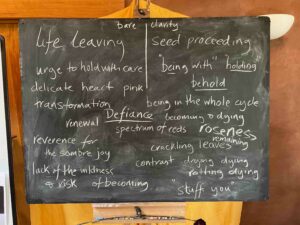 bare clarity
life leaving
seed proceeding
urge to hold with care
"being with" holding
behold
delicate heart pink
transformation
being in the whole cycle
Defiance
renewal
becoming & dying
spectrum of reds
roseness
remaining
reverence for
the sombre joy
crackling leaves
contrast drying dying
rotting dying
lack of the wildness
& risk of becoming
"stuff you"